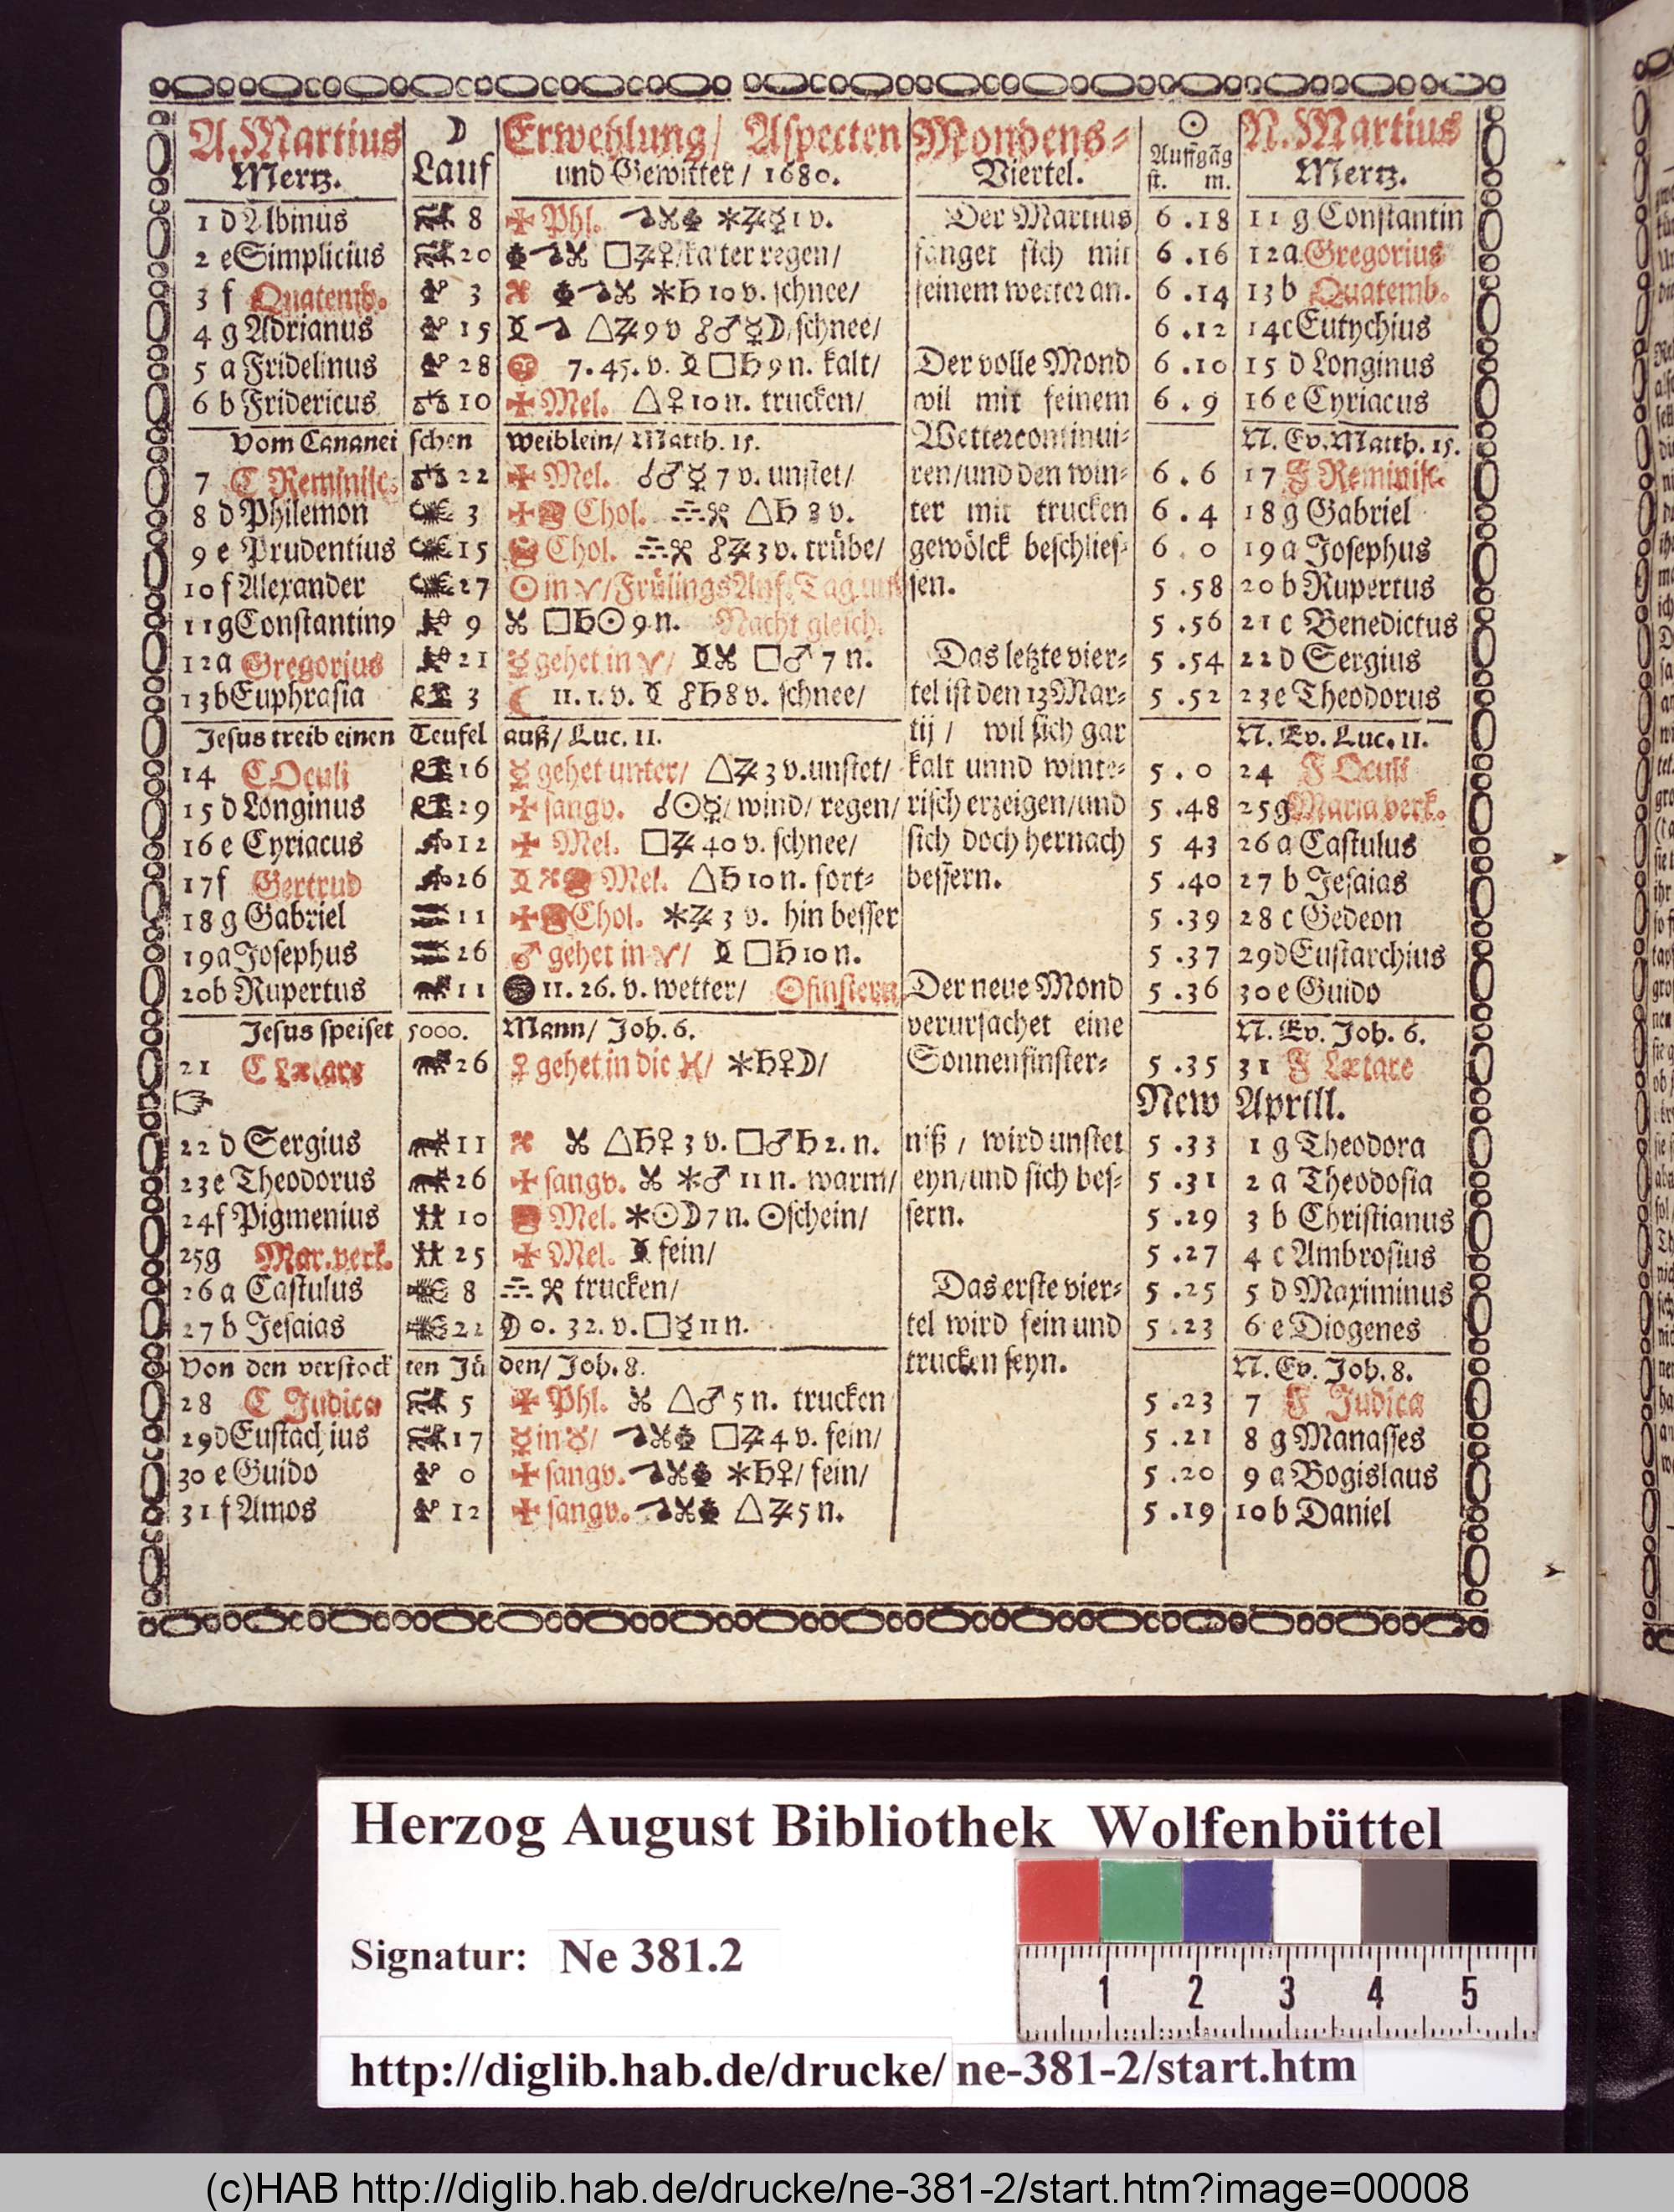 A. Martius ☽ Erwehlung/ Aspecten Mondens= ☉ N. Martius
Mertz. Lauf und Gewitter / 1680. Viertel. Auffgãg st. m. Mertz.
1 d Albinus 8 Phl. 1 v. Der Martius 6 .18 11 g Constantin
2 e Simplicius 20 □♃♀/kalter regen/ fänget sich mit 6 .16 12 a Gregorius
3 f Quatemb. 3 ✱♄ 10 v. schnee/ seinem wetter an. 6 .14 13 b Quatemb.
4 g Adrianus 15 △♃ 9 v ☍♂☿☽/schnee/ 6 .12 14 c Eutychius
5 a Fridelinus 28 7. 45. v. □♄ 9 n. kalt/ Der volle Mond 6 .10 15 d Longinus
6 b Fridericus 10 Mel. △♀ 10 n. trucken/ wil mit seinem 6 . 9 16 e Cyriacus
Vom Cananei schen weiblein/ Matth. 15. Wetter continui= N. Ev. Matth. 15.
7 C Reminisc. 22 Mel. ☌♂☿ 7 v. unstet/ ren/und den win= 6 . 6 17 F Reminisc.
8 d Philemon 3 Chol. △♄ 3 v. ter mit trucken 6 . 4 18 g Gabriel
9 e Prudentius 15 Chol. ☍♃ 3 v. trübe/ gewölck beschlies= 6 . 0 19 a Josephus
10 f Alexander 27 ☉ in ♈/Frülings Anf. Tag und sen. 5 .58 20 b Rupertus
11 g Constantin9 9 □♄☉ 9 n. Nacht gleich. 5 .56 21 c Benedictus
12 a Gregorius 21 ☿ gehet in ♈/ □♂ 7 n. Das letzte vier= 5 .54 22 d Sergius
13 b Euphrasia 3 11. 1. v. ☍♄ 8 v. schnee/ tel ist den 13 Mar= 5 .52 23 e Theodorus
Jesus treib einen Teufel auß/ Luc. 11. tij / wil sich gar N. Ev. Luc. 11.
14 C Oculi 16 ☿ gehet unter/ △♃ 3 v. unstet/ kalt unnd winte= 5 . 0 24 F Oculi
15 d Longinus 29 sangv. ☌☉☿/ wind/ regen/ risch erzeigen/und 5 .48 25 g Maria verk.
16 e Cyriacus 12 Mel. □♃ 40 v. schnee/ sich doch hernach 5 43 26 a Castulus
17 f Gertrud 26 Mel. △♄ 10 n. fort= bessern. 5 .40 27 b Jesaias
18 g Gabriel 11 Chol. ✱♃ 3 v. hin besser 5 .39 28 c Gedeon
19 a Josephus 26 ♂ gehet in ♈/ □♄ 10 n. 5 .37 29 d Eustarchius
20 b Rupertus 11 11. 26. v. wetter/ ☉finstern. Der neue Mond 5 .36 30 e Guido
Jesus speiset 5000. Mann/ Joh. 6. verursachet eine N. Ev. Joh. 6.
21 C Lætare 26 ♀ gehet in die ♓/ ✱♄♀☽/ Sonnenfinster= 5 .35 31 F Lætare
New Aprill.
22 d Sergius 11 △♄♀ 3 v. □♂♄ 2. n. niß / wird unstet 5 .33 1 g Theodora
23 e Theodorus 26 sangv. ✱♂ 11 n. warm/ eyn/und sich bes= 5 .31 2 a Theodosia
24 f Pigmenius 10 Mel. ✱☉☽ 7 n. ☉schein/ sern. 5 .29 3 b Christianus
25 g Mar. verk. 25 Mel. fein/ 5 .27 4 c Ambrosius
26 a Castulus 8 trucken/ Das erste vier= 5 .25 5 d Maximinus
27 b Jesaias 22 0. 32. v. □☿ 11 n. tel wird fein und 5 .23 6 e Diogenes
Von den verstock ten Jü den/ Joh. 8. trucken seyn. N. Ev. Joh. 8.
28 C Judica 5 Phl. △♂ 5 n. trucken 5 .23 7 F Judica
29 d Eustachius 17 ☿ in ♉/ □♃ 4 v. fein/ 5 .21 8 g Manasses
30 e Guido 0 sangv. ✱♄♀/ fein/ 5 .20 9 a Bogislaus
31 f Amos 12 sangv. △♃ 5 n. 5 .19 10 b Daniel
Herzog August Bibliothek Wolfenbüttel
Signatur: Ne 381.2
1 2 3 4 5
http://diglib.hab.de/drucke/ne-381-2/start.htm
(c)HAB http://diglib.hab.de/drucke/ne-381-2/start.htm?image=00008